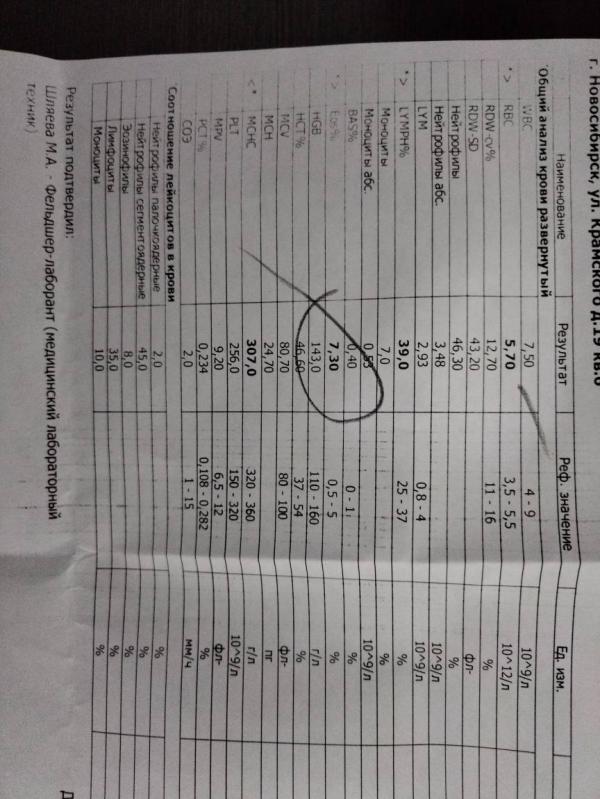 г. Новосибирск, ул. Крамского д.19 кв.6
Наименование Результат Реф. значение Ед. изм.
Общий анализ крови развернутый
WBC 7,50 4 - 9 10^9/л
*> RBC 5,70 3,5 - 5,5 10^12/л
RDW-cv% 12,70 11 - 16 %
RDW SD 43,20 фл-
Нейтрофилы 46,30 %
Нейтрофилы абс. 3,48 10^9/л
LYM 2,93 0,8 - 4 10^9/л
*> LYMPH% 39,0 25 - 37 %
Моноциты 7,0 %
Моноциты абс. 0,53 10^9/л
BAS% 0,40 0 - 1 %
*> Eos% 7,30 0,5 - 5 %
HGB 143,0 110 - 160 г/л
HCT% 46,60 37 - 54 %
MCV 80,70 80 - 100 фл-
MCH 24,70 пг
<* MCHC 307,0 320 - 360 г/л
PLT 256,0 150 - 320 10^9/л
MPV 9,20 6,5 - 12 фл-
PCT% 0,234 0,108 - 0,282 %
СОЭ 2,0 1 - 15 мм/ч
Соотношение лейкоцитов в крови
Нейтрофилы палочкоядерные 2,0 %
Нейтрофилы сегментоядерные 45,0 %
Эозинофилы 8,0 %
Лимфоциты 35,0 %
Моноциты 10,0 %
Результат подтвердил:
Шляева М.А. - Фельдшер-лаборант (медицинский лабораторный
техник)